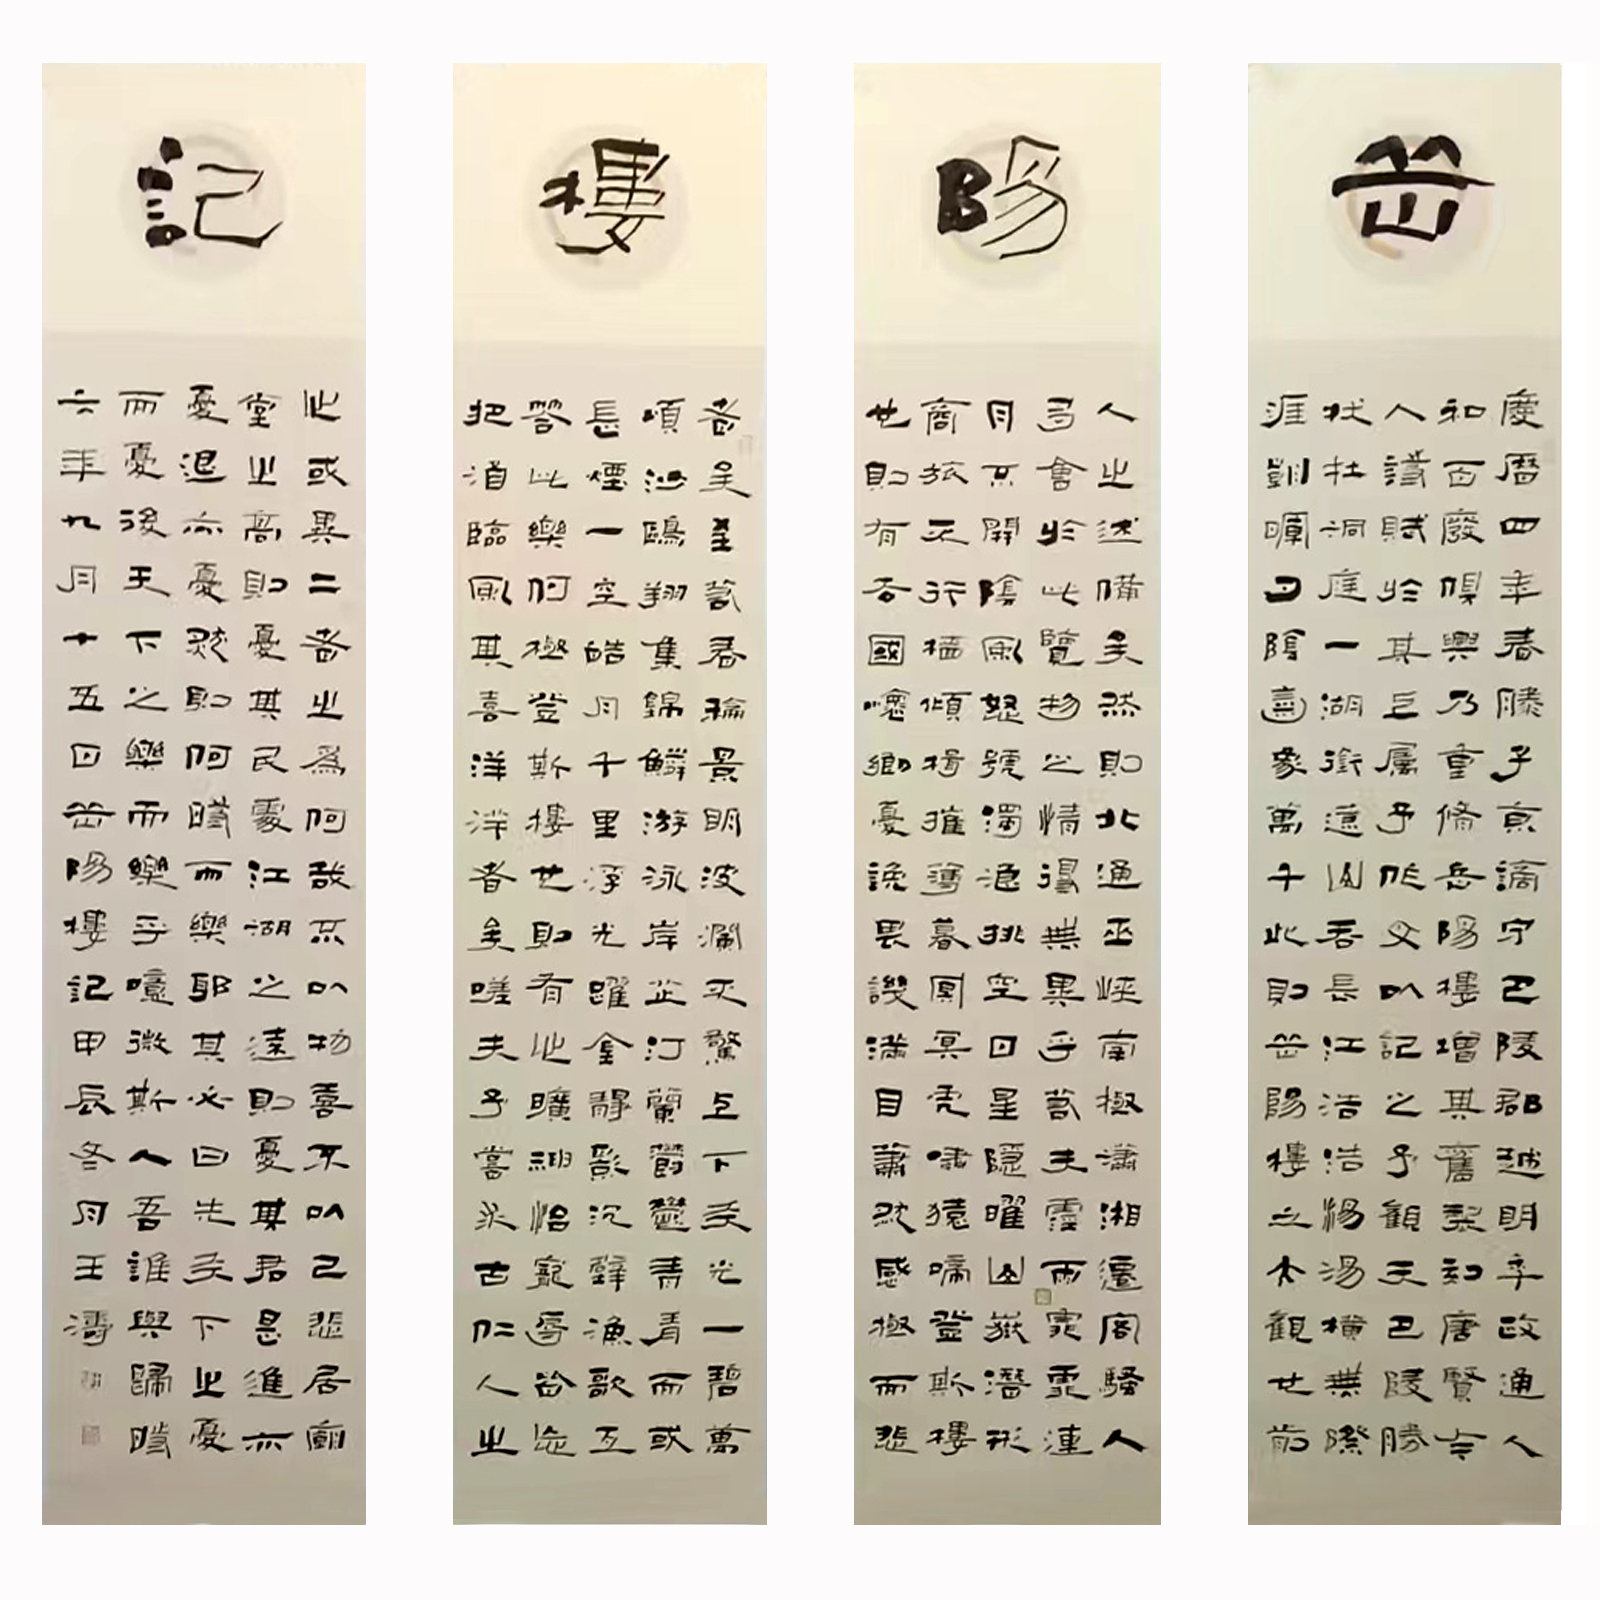 岳
慶曆四年春滕子京謫守巴陵郡越明年政通人
和百廢俱興乃重脩岳陽樓增其舊制刻唐賢今
人詩賦於其上屬予作文以記之予觀夫巴陵勝
狀在洞庭一湖銜遠山吞長江浩浩湯湯橫無際
涯朝暉夕陰氣象萬千此則岳陽樓之大觀也前
陽
人之述備矣然則北通巫峽南極瀟湘遷客騷人
多會於此覽物之情得無異乎若夫霪雨霏霏連
月不開陰風怒號濁浪排空日星隱曜山嶽潛形
商旅不行檣傾楫摧薄暮冥冥虎嘯猿啼登斯樓
也則有去國懷鄉憂讒畏譏滿目蕭然感極而悲
樓
者矣至若春和景明波瀾不驚上下天光一碧萬
頃沙鷗翔集錦鱗游泳岸芷汀蘭鬱鬱青青而或
長煙一空皓月千里浮光躍金靜影沉璧漁歌互
答此樂何極登斯樓也則有心曠神怡寵辱皆忘
把酒臨風其喜洋洋者矣嗟夫予嘗求古仁人之
記
心或異二者之為何哉不以物喜不以己悲居廟
堂之高則憂其民處江湖之遠則憂其君是進亦
憂退亦憂然則何時而樂耶其必曰先天下之憂
而憂後天下之樂而樂乎噫微斯人吾誰與歸時
六年九月十五日岳陽樓記甲辰冬月王濤